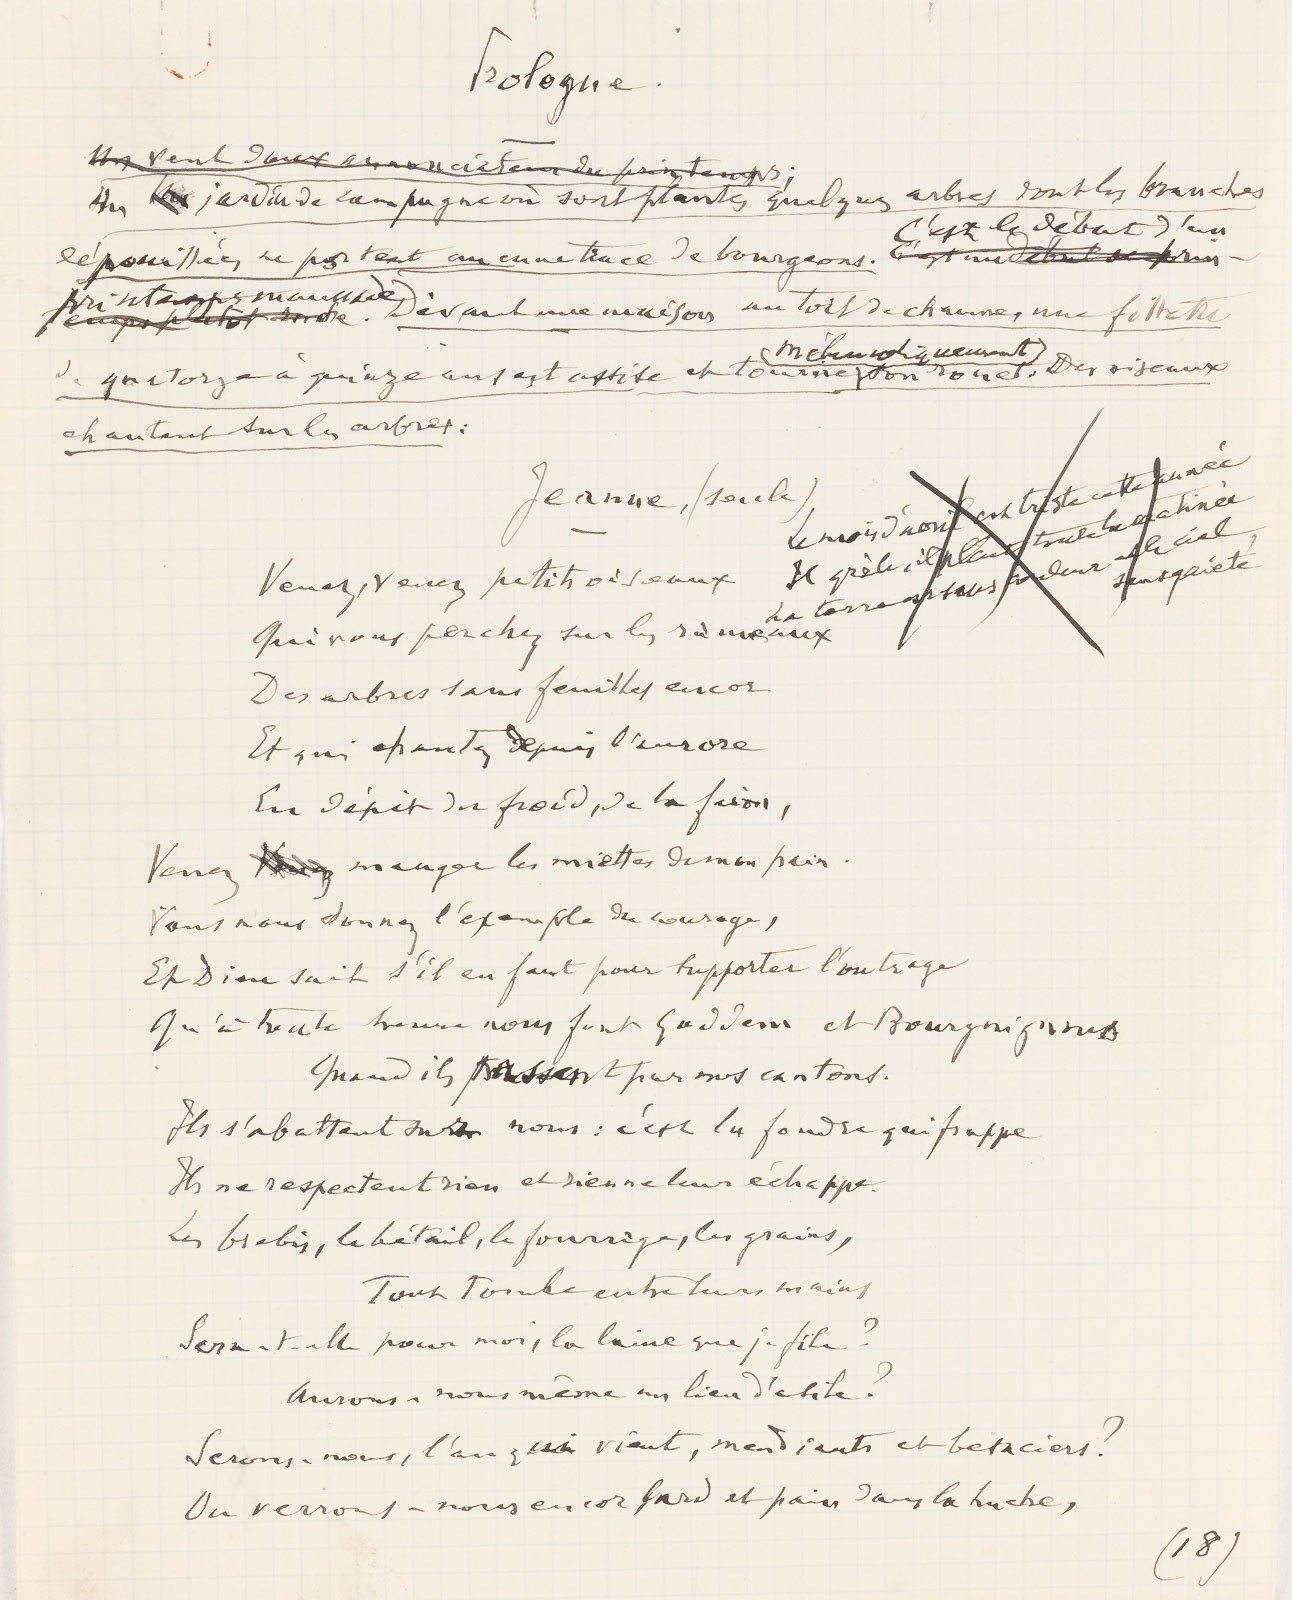 Prologue.
Un vent doux annonciateur du printemps;
Un jardin de campagne où sont plantés quelques arbres dont les branches
dépouillées ne portent aucune trace de bourgeons. C'est le début d'un
C'est un début de prin-
printemps maussade. Devant une maison au toit de chaume, une fillette
temps plutôt rude.
de quatorze à quinze ans est assise et tourne (mélancoliquement) son rouet. Des oiseaux
chantent sur les arbres:
Jeanne, (seule)
Le mois d'avril est triste cette année
Il grêle, il pleut toute la matinée
La terre est sans couleur et le ciel
sans gaieté,
Venez, venez petits oiseaux
Qui vous perchez sur les rameaux
Des arbres sans feuilles encor
Et qui chantez depuis l'aurore
En dépit du froid, de la faim,
Venez manger les miettes de mon pain.
Vous nous donnez l'exemple du courage,
Et Dieu sait s'il en faut pour supporter l'outrage
Qu'à toute heure nous font Goddem et Bourguignons
Quand ils passent par nos cantons.
Ils s'abattent sur nous: c'est la foudre qui frappe
Ils ne respectent rien et rien ne leur échappe.
Les brebis, le bétail, le fourrage, les grains,
Tout tombe entre leurs mains
Sera-t-elle pour moi, la laine que je file?
Aurons-nous même un lieu d'asile?
Serons-nous, l'an qui vient, mendiants et besaciers?
Ou verrons-nous encor lard et pain dans la huche,
(18)